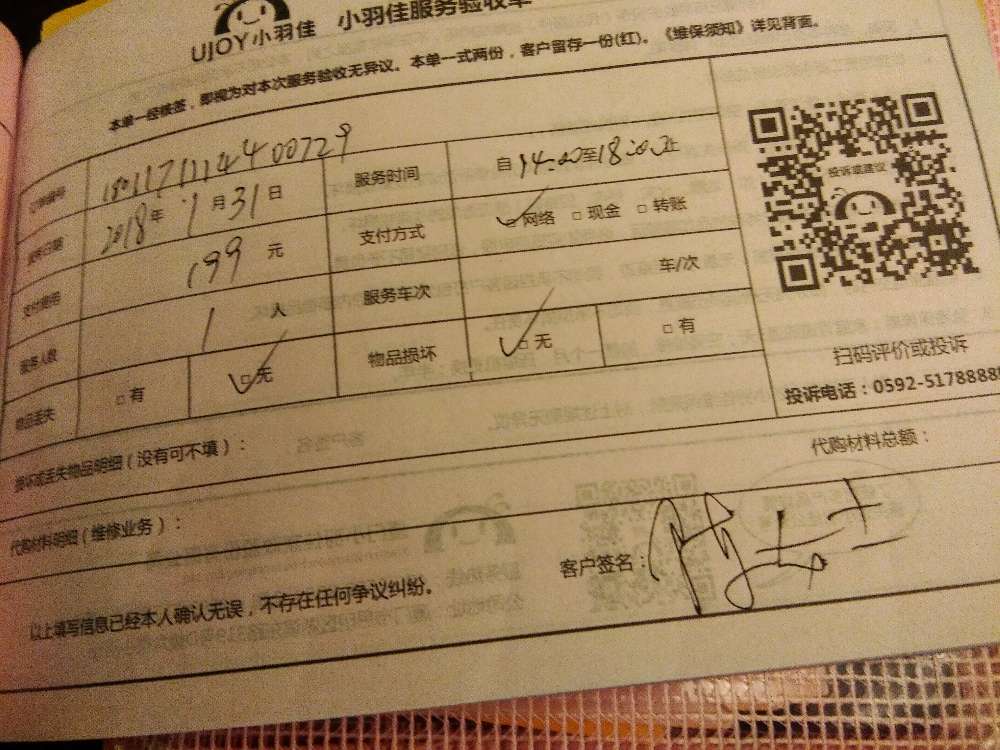 UJOY小羽佳 小羽佳服务验收单
本单一经核签，即视为对本次服务验收无异议。本单一式两份，客户留存一份(红)。《维保须知》详见背面。
订单编号 服务时间 自14:00至18:00止
服务日期 2018年1月31日 支付方式 网络 □现金 □转账
支付费用 199元 服务车次 车/次
服务人数 1人 物品损坏 □无 □有
物品丢失 □有 □无
投诉或建议
扫码评价或投诉
投诉电话：0592-5178888
损坏或丢失物品明细(没有可不填)：
代购材料总额：
代购材料明细(维修业务)：
客户签名：
以上填写信息已经本人确认无误，不存在任何争议纠纷。